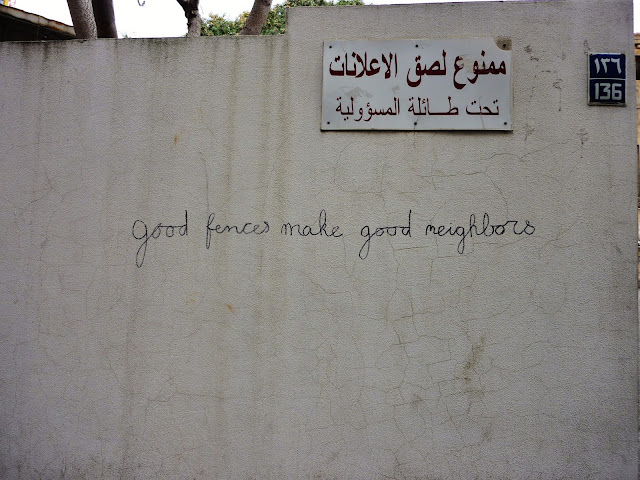 ممنوع لصق الاعلانات
تحت طائلة المسؤولية
١٣٦
136
good fences make good neighbors